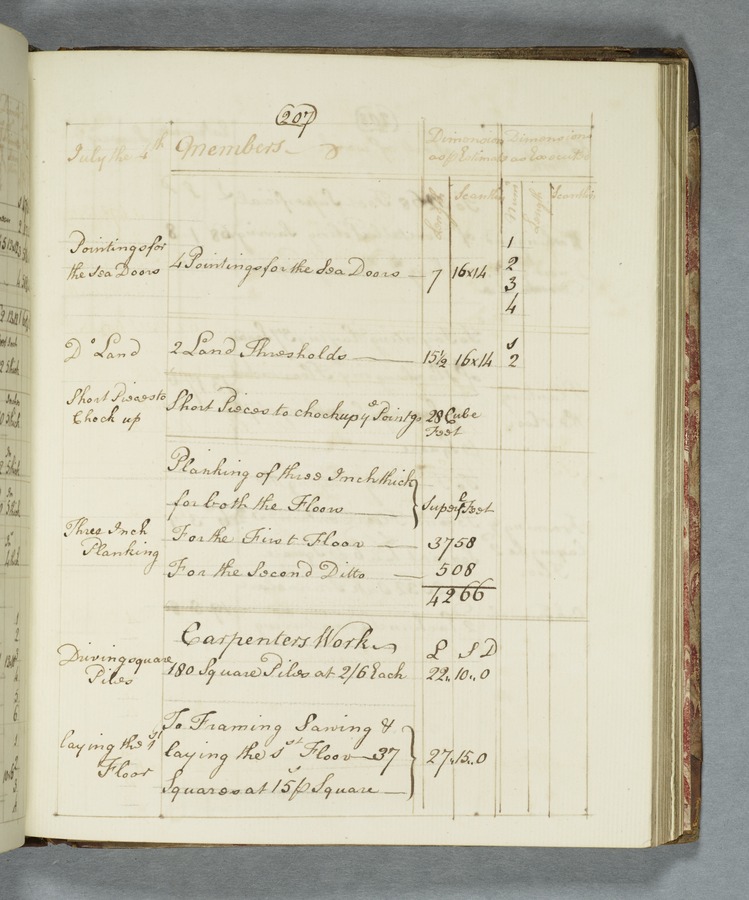 207
July the 4th Members
Dimension as p Estimate Dimension as Executed
Length Scantlin Numr Length Scantlin
Pointings for the Sea Doors
4 Pointings for the Sea Doors 7 16x14
1
2
3
4
Do Land 2 Land Thresholds 15½ 16x14
1
2
Short Pieces to Chock up
Short Pieces to chock up ye Pointgs 28 Cube Feet
Planking of three Inch thick
for both the Floors Superfl Feet
Three Inch Planking
For the First Floor 3758
For the Second Ditto 508
4266
Carpenters Work L S D
Driving square Piles
180 Square Piles at 2/6 Each 22,,10,,0
laying the 1st Floor
To Framing Sawing &
laying the 1st Floor 37 27,,15,,0
Squares at 15s p Square